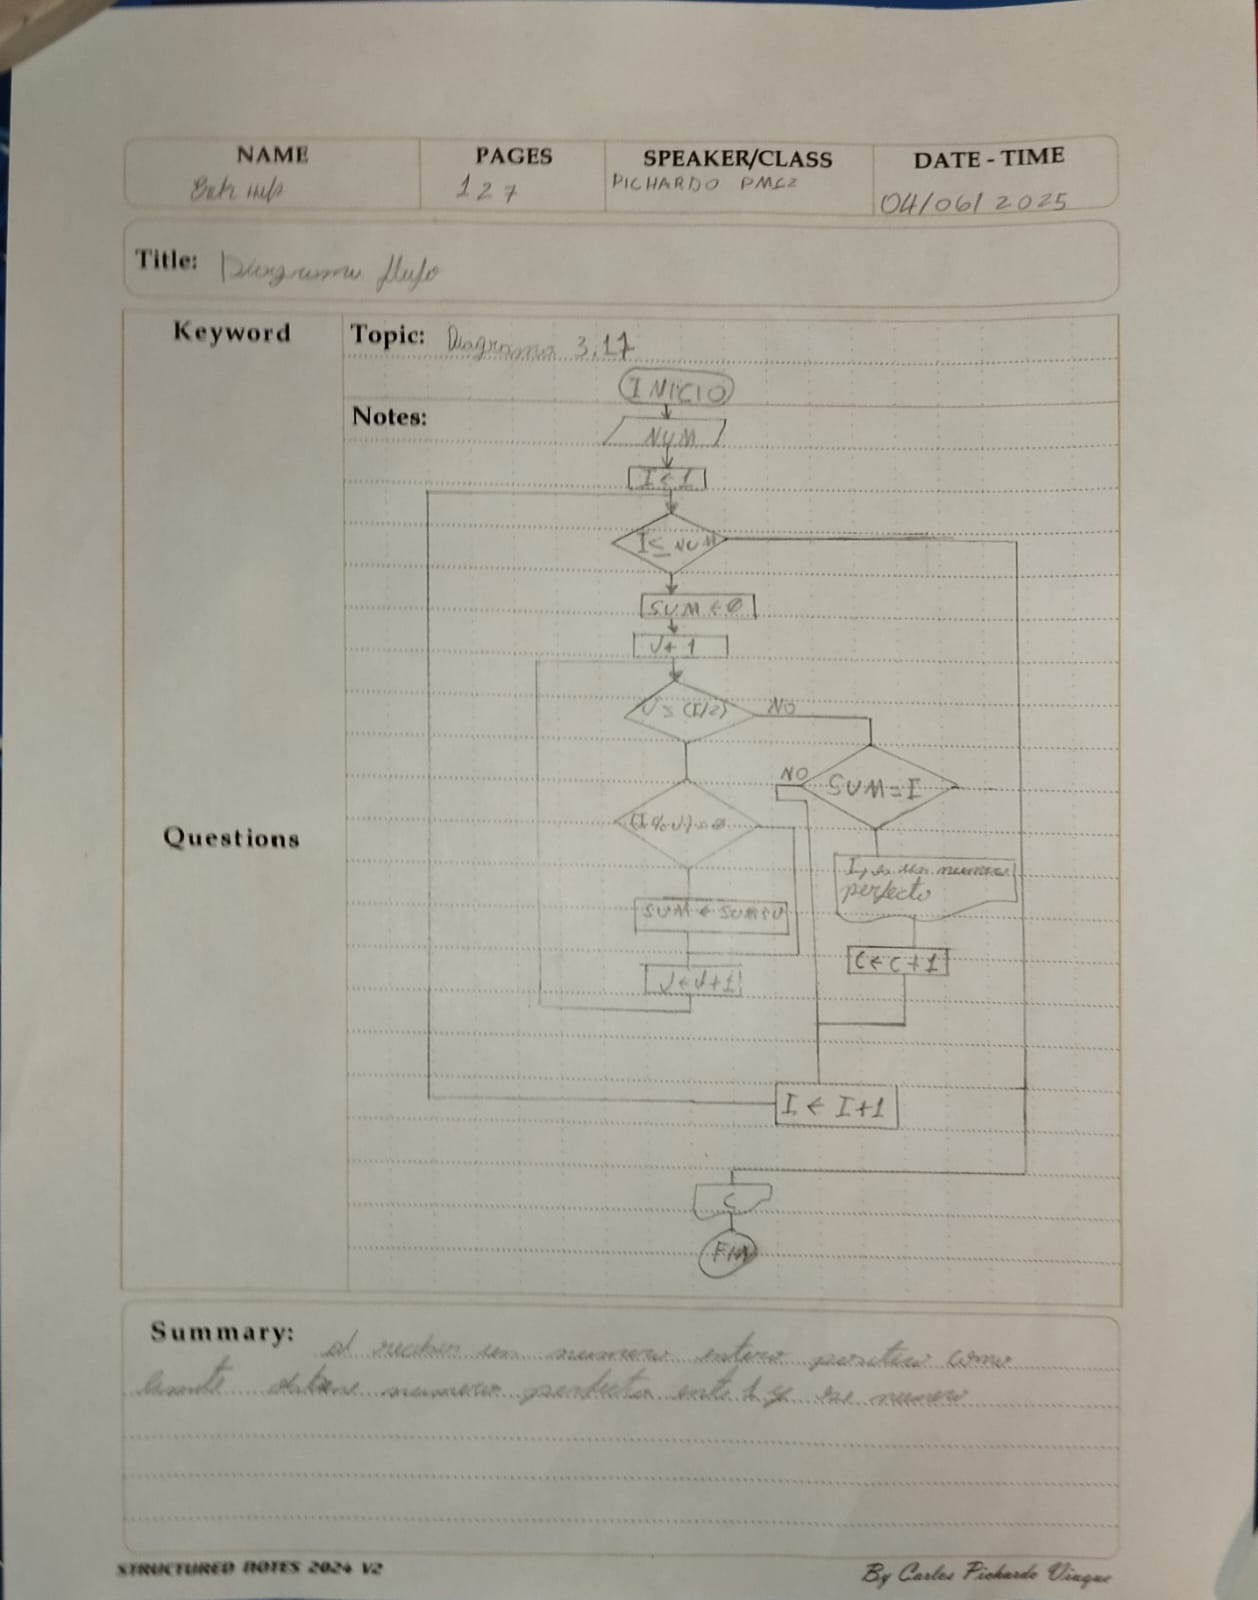 NAME
PAGES
SPEAKER/CLASS
DATE - TIME
127
PICHARDO PM62
04/06/2025
Title: Diagrama flujo
Keyword
Topic: Diagrama 3.17
INICIO
Notes:
NUM
I ← 1
I ≤ NUM
SUM ← 0
J ← 1
J ≤ (I/2)
NO
NO
SUM = I
(I%J) = 0
Questions
I, es un numero
perfecto
SUM ← SUM+J
C ← C + 1
J ← J+1
I ← I+1
C
FIN
Summary: al recibir un numero entero positivo como
limite obtiene numero perfecto entre 1 y ese numero
STRUCTURED NOTES 2024 V2
By Carlos Pichardo Viuque